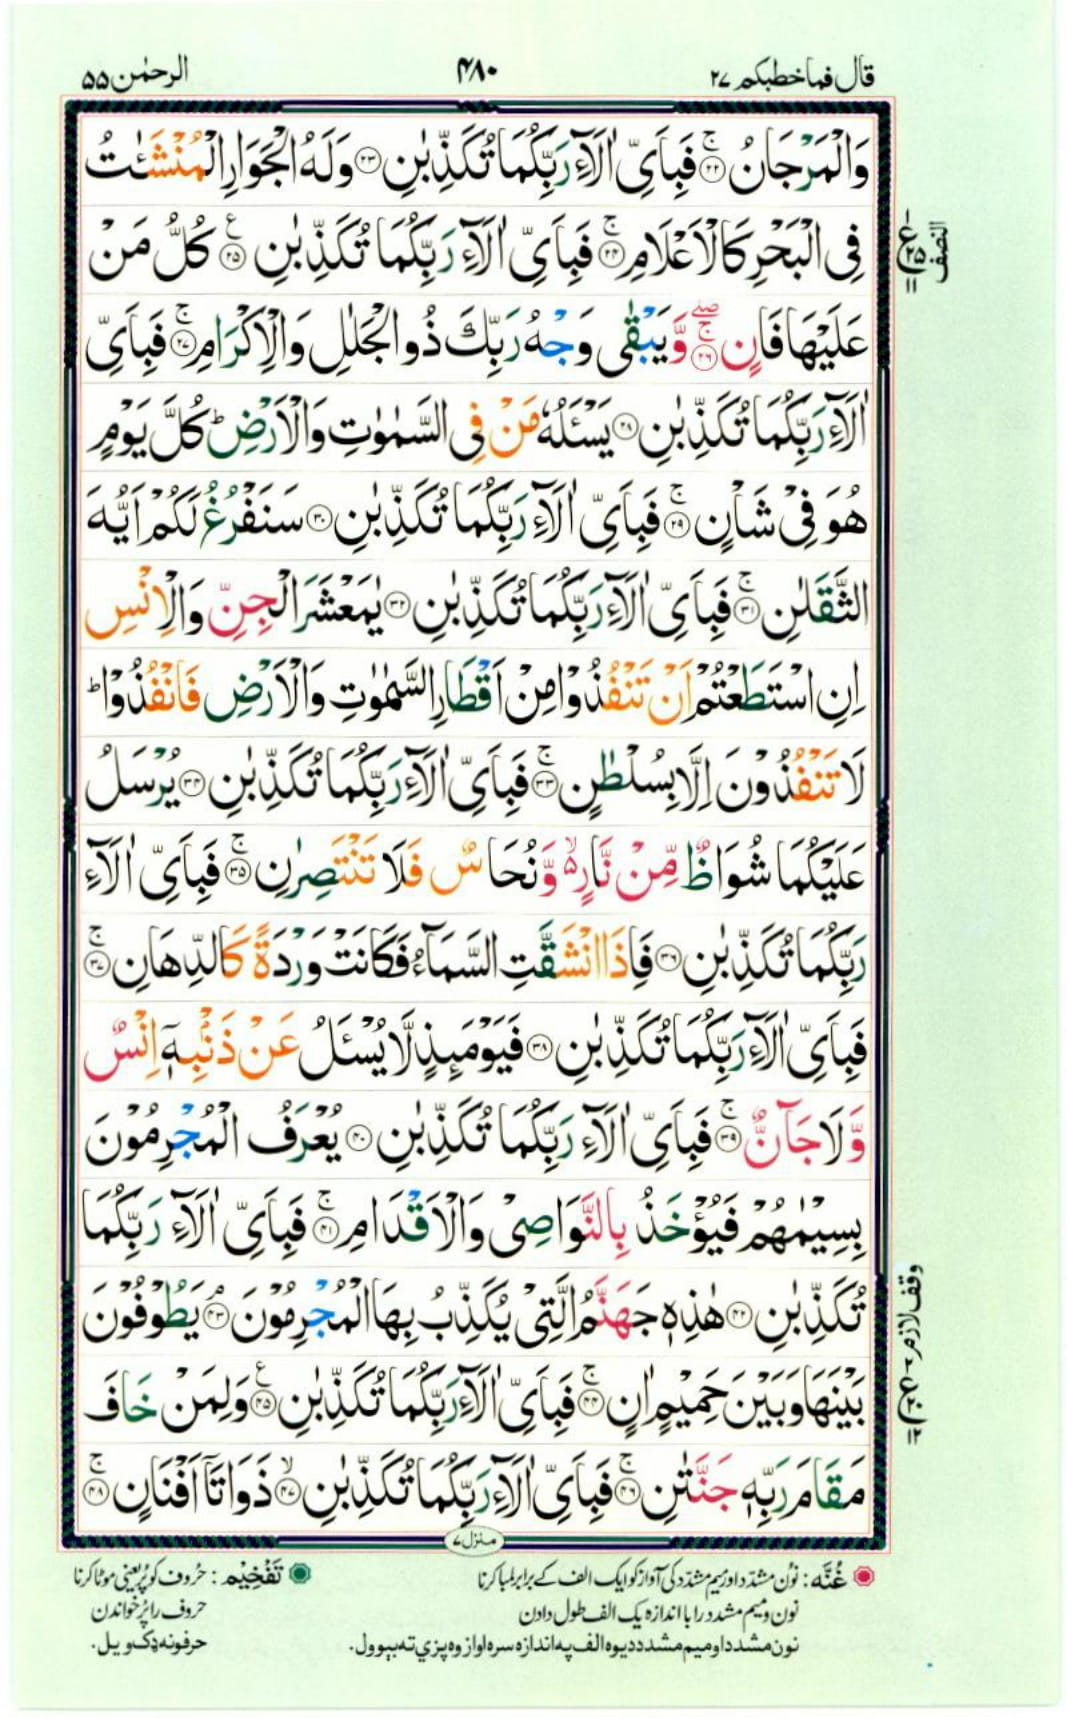 قال فماخطبکم ۲۷
۴۸۰
الرحمٰن ۵۵
وَالْمَرْجَانُ ۚ‏﴿۲۲﴾ فَبِاَىِّ اٰلَآءِ رَبِّكُمَا تُكَذِّبٰنِ ﴿۲۳﴾ وَلَهُ الْجَوَارِ الْمُنْشَئٰتُ
فِى الْبَحْرِ كَالْاَعْلَامِ ۚ‏﴿۲۴﴾ فَبِاَىِّ اٰلَآءِ رَبِّكُمَا تُكَذِّبٰنِ ﴿۲۵﴾ ع كُلُّ مَنْ
عَلَيْهَا فَانٍ ۖۚ‏﴿۲۶﴾ وَّيَبْقٰى وَجْهُ رَبِّكَ ذُو الْجَلٰلِ وَالْاِكْرَامِ ۚ‏﴿۲۷﴾ فَبِاَىِّ
اٰلَآءِ رَبِّكُمَا تُكَذِّبٰنِ ﴿۲۸﴾ يَسْئَلُهٗ مَنْ فِى السَّمٰوٰتِ وَالْاَرْضِ ؕ كُلَّ يَوْمٍ
هُوَ فِىْ شَاْنٍ ۚ‏﴿۲۹﴾ فَبِاَىِّ اٰلَآءِ رَبِّكُمَا تُكَذِّبٰنِ ﴿۳۰﴾ سَنَفْرُغُ لَكُمْ اَيُّهَ
الثَّقَلٰنِ ۚ‏﴿۳۱﴾ فَبِاَىِّ اٰلَآءِ رَبِّكُمَا تُكَذِّبٰنِ ﴿۳۲﴾ يٰمَعْشَرَ الْجِنِّ وَالْاِنْسِ
اِنِ اسْتَطَعْتُمْ اَنْ تَنْفُذُوْا مِنْ اَقْطَارِ السَّمٰوٰتِ وَالْاَرْضِ فَانْفُذُوْا ؕ
لَا تَنْفُذُوْنَ اِلَّا بِسُلْطٰنٍ ۚ‏﴿۳۳﴾ فَبِاَىِّ اٰلَآءِ رَبِّكُمَا تُكَذِّبٰنِ ﴿۳۴﴾ يُرْسَلُ
عَلَيْكُمَا شُوَاظٌ مِّنْ نَّارٍ ۙ۬ وَّنُحَاسٌ فَلَا تَنْتَصِرٰنِ ۚ‏﴿۳۵﴾ فَبِاَىِّ اٰلَآءِ
رَبِّكُمَا تُكَذِّبٰنِ ﴿۳۶﴾ فَاِذَا انْشَقَّتِ السَّمَآءُ فَكَانَتْ وَرْدَةً كَالدِّهَانِ ۚ‏﴿۳۷﴾
فَبِاَىِّ اٰلَآءِ رَبِّكُمَا تُكَذِّبٰنِ ﴿۳۸﴾ فَيَوْمَئِذٍ لَّا يُسْئَلُ عَنْ ذَنْۢبِهٖۤ اِنْسٌ
وَّلَا جَآنٌّ ۚ‏﴿۳۹﴾ فَبِاَىِّ اٰلَآءِ رَبِّكُمَا تُكَذِّبٰنِ ﴿۴۰﴾ يُعْرَفُ الْمُجْرِمُوْنَ
بِسِيْمٰهُمْ فَيُؤْخَذُ بِالنَّوَاصِىْ وَالْاَقْدَامِ ۚ‏﴿۴۱﴾ فَبِاَىِّ اٰلَآءِ رَبِّكُمَا
تُكَذِّبٰنِ ﴿۴۲﴾ هٰذِهٖ جَهَنَّمُ الَّتِىْ يُكَذِّبُ بِهَا الْمُجْرِمُوْنَ ۘ‏﴿۴۳﴾ يَطُوْفُوْنَ
بَيْنَهَا وَبَيْنَ حَمِيْمٍ اٰنٍ ۚ‏﴿۴۴﴾ فَبِاَىِّ اٰلَآءِ رَبِّكُمَا تُكَذِّبٰنِ ﴿۴۵﴾ ع وَلِمَنْ خَافَ
مَقَامَ رَبِّهٖ جَنَّتٰنِ ۚ‏﴿۴۶﴾ فَبِاَىِّ اٰلَآءِ رَبِّكُمَا تُكَذِّبٰنِ ۙ‏﴿۴۷﴾ ذَوَاتَاۤ اَفْنَانٍ ۚ‏﴿۴۸﴾
النصف
وقف لازم
منزل ۷
غُنَّه : نُون مشدّد اور میم مشدّد کی آواز کو ایک الف کے برابر لمبا کرنا
نون و میم مشدد را با اندازه یک الف طول دادن
نون مشدد او میم مشدد دیوه الف په اندازه سره اواز وه پزي ته بیوول.
تَفْخِيْم : حُروف کو پُر یعنی موٹا کرنا
حروف را پُر خواندن
حرفونه ډک ویل.